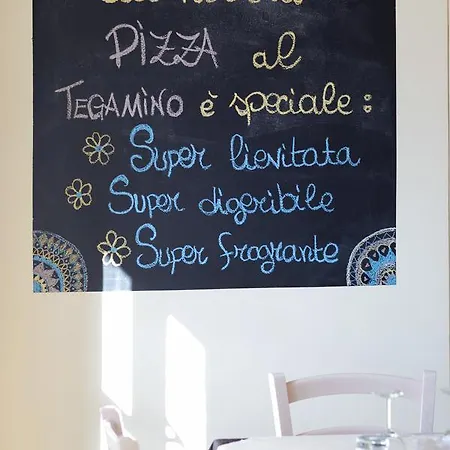 PiZZA al
TEGAMiNO è speciale:
Super lievitata
Super digeribile
Super fragrante